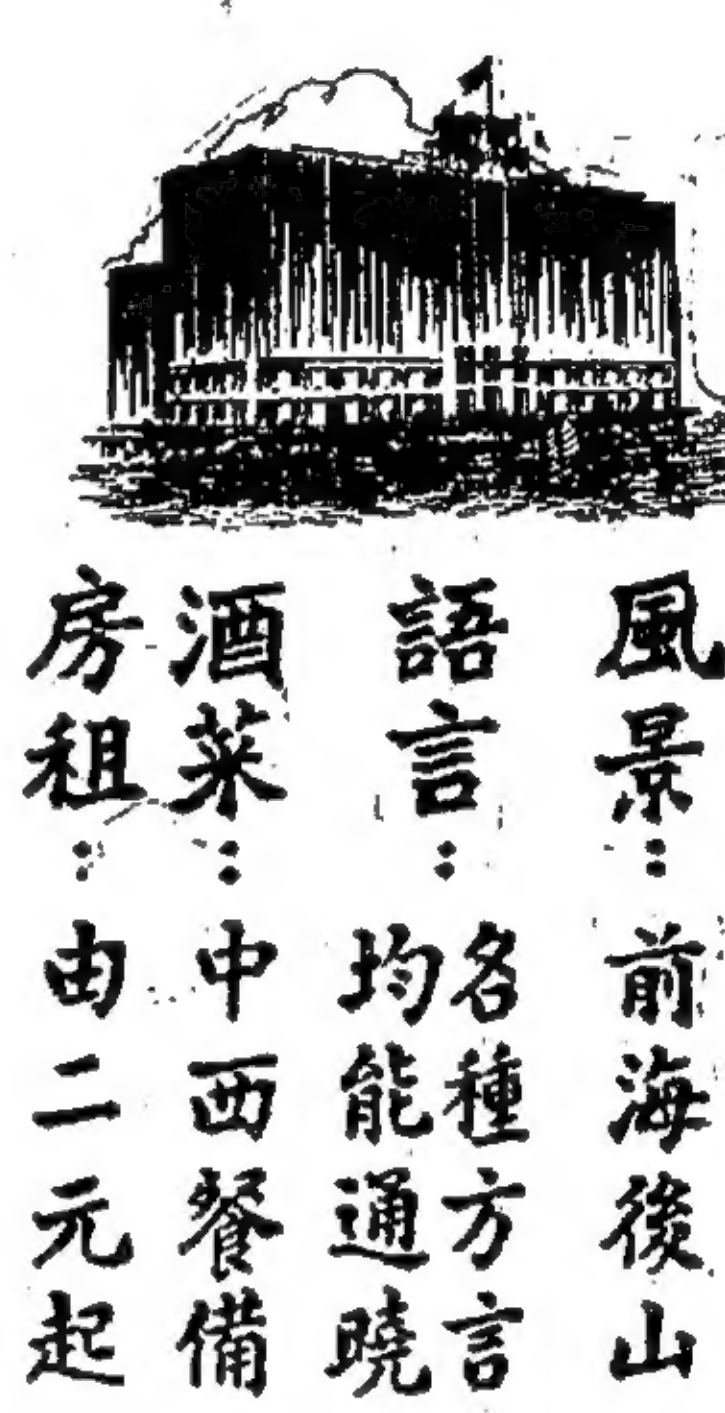 風景：前海後山
語言：各種方言
均能通曉
酒菜：中西餐備
房租：由二元起